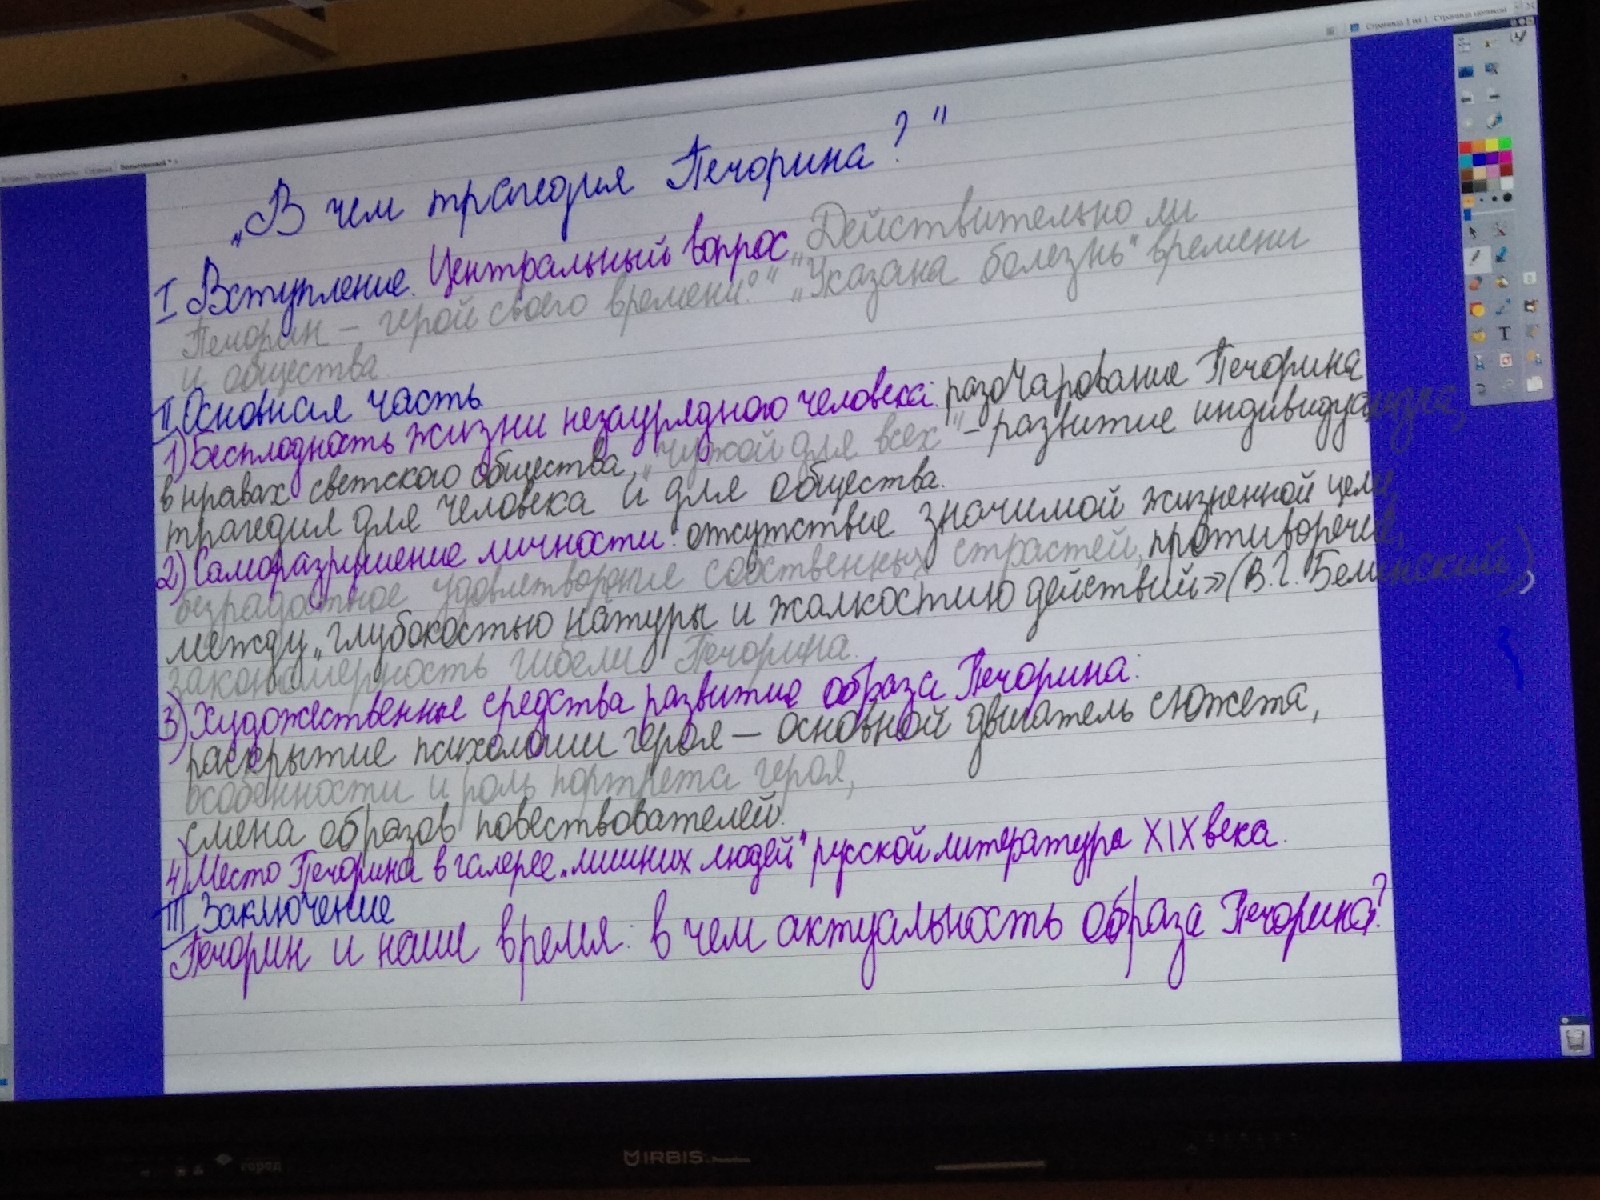 Страница 1 из 1 Страница целиком
„В чем трагедия Печорина?"
I Вступление. Центральный вопрос „Действительно ли
Печорин – герой своего времени?" „Указана болезнь" времени
и общества.
II Основная часть
1) Бесплодность жизни незаурядного человека: разочарование Печорина
в нравах светского общества, „чужой для всех" – развитие индивидуализма,
трагедия для человека и для общества.
2) Саморазрушение личности: отсутствие значимой жизненной цели,
безрадостное удовлетворение собственных страстей, противоречие,
между „глубокостью натуры и жалкостию действий» (В.Г. Белинский)
закономерность гибели Печорина.
3) Художественные средства развитие образа Печорина:
раскрытие психологии героя – основной двигатель сюжета,
особенности и роль портрета героя,
смена образов повествователей.
4) Место Печорина в галерее „лишних людей" русской литературе XIX века.
III Заключение
Печорин и наше время: в чем актуальность образа Печорина?
IRBIS